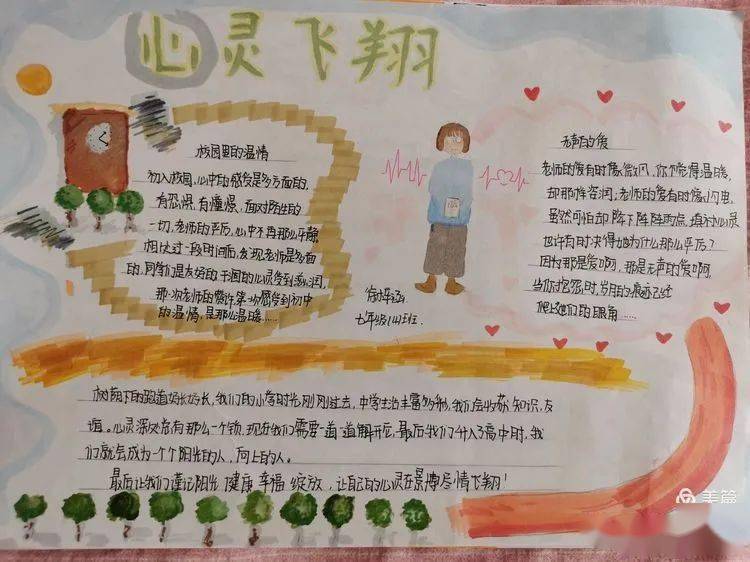 心灵飞翔
校园里的温情
初入校园，心中的感受是多方面的，
有恐惧，有憧憬，面对陌生的
一切，老师的严厉，心中不再那么平静，
相处过一段时间后，发现老师是多面
的，同学们是友好的，干涸的心灵受到滋润，
那一次老师的赞许，第一次感受到初中
的温情，是那么温暖……
无声的爱
老师的爱有时像微风，你不能得温暖，
却那样滋润；老师的爱有时像闪电，
虽然可怕却降下阵阵雨点，填补心灵
也许有时决得她为什么那么严厉？
因为那是爱啊，那是无声的爱啊，
当你抱怨时，岁月的痕迹已经
爬上她们的眼角……
七年级14班
树荫下的跑道好长好长，我们的小学时光刚刚过去，中学生活丰富多彩，我们会收获知识，友
谊。心灵深处总有那么一个锁，现在我们需要一道一道解开它，最后我们升入高中时，我
们就会成为一个个阳光的人，向上的人。
最后让我们谨记阳光 健康 幸福 绽放，让自己的心灵在景博尽情飞翔！
美篇